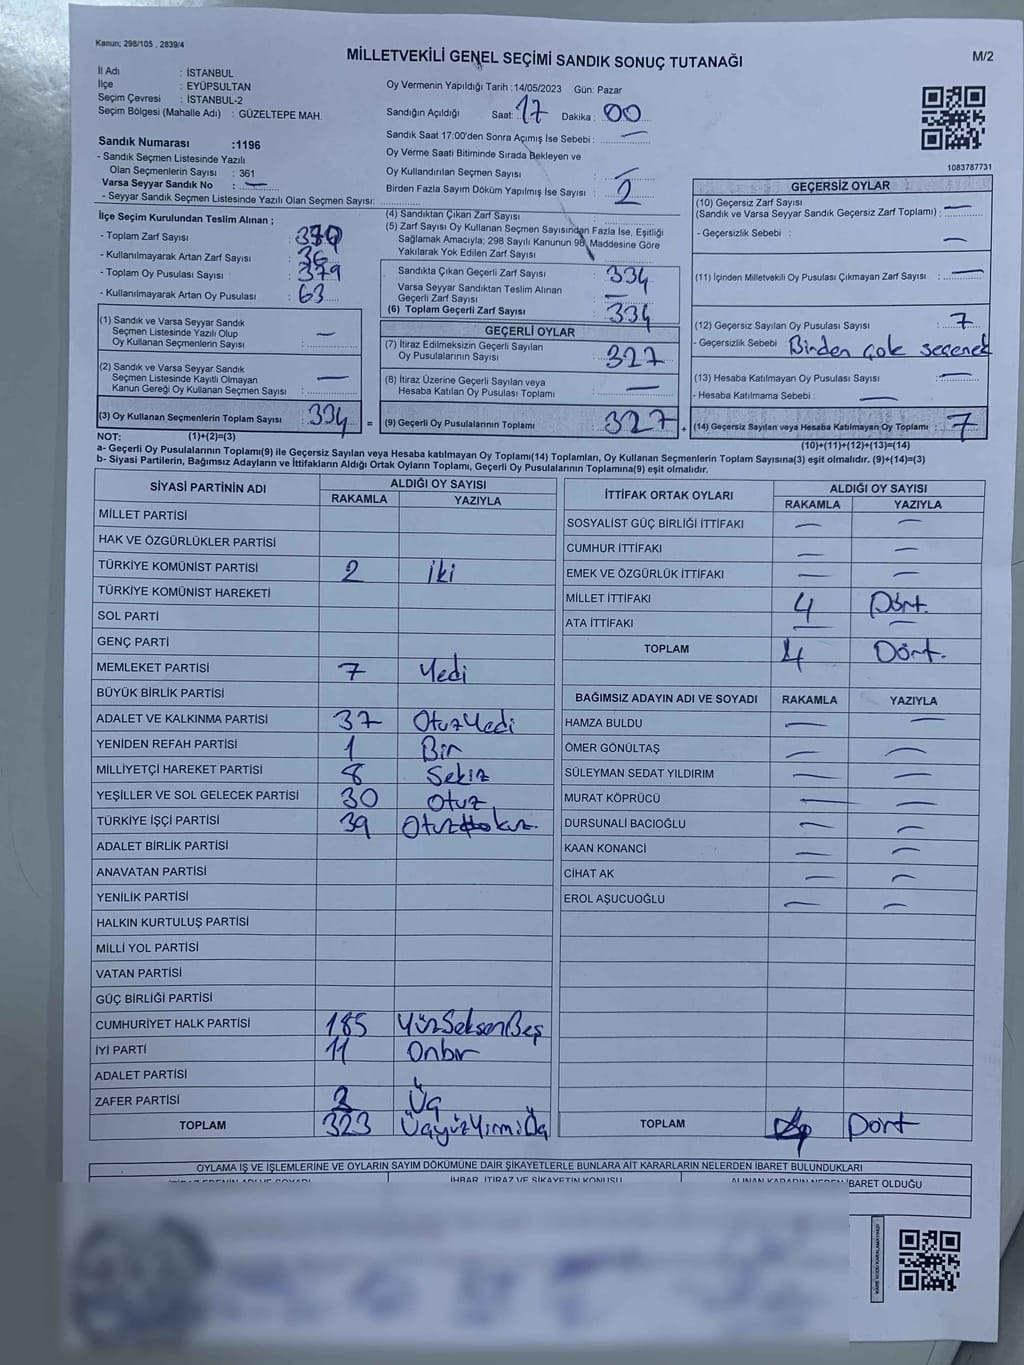 Kanun; 298/105 , 2839/4
MİLLETVEKİLİ GENEL SEÇİMİ SANDIK SONUÇ TUTANAĞI
M/2
İl Adı : İSTANBUL
İlçe : EYÜPSULTAN
Seçim Çevresi : İSTANBUL-2
Seçim Bölgesi (Mahalle Adı) : GÜZELTEPE MAH.
Sandık Numarası :1196
- Sandık Seçmen Listesinde Yazılı
Olan Seçmenlerin Sayısı : 361
Varsa Seyyar Sandık No : —
- Seyyar Sandık Seçmen Listesinde Yazılı Olan Seçmen Sayısı:
Oy Vermenin Yapıldığı Tarih :14/05/2023 Gün: Pazar
Sandığın Açıldığı Saat: 17 Dakika : 00
Sandık Saat 17:00'den Sonra Açılmış İse Sebebi : —
Oy Verme Saati Bitiminde Sırada Bekleyen ve
Oy Kullandırılan Seçmen Sayısı : —
Birden Fazla Sayım Döküm Yapılmış İse Sayısı : 2
1083787731
İlçe Seçim Kurulundan Teslim Alınan ;
- Toplam Zarf Sayısı :
- Kullanılmayarak Artan Zarf Sayısı : 36
- Toplam Oy Pusulası Sayısı : 379
- Kullanılmayarak Artan Oy Pusulası : 63
(1) Sandık ve Varsa Seyyar Sandık
Seçmen Listesinde Yazılı Olup
Oy Kullanan Seçmenlerin Sayısı : —
(2) Sandık ve Varsa Seyyar Sandık
Seçmen Listesinde Kayıtlı Olmayan
Kanun Gereği Oy Kullanan Seçmen Sayısı : —
(3) Oy Kullanan Seçmenlerin Toplam Sayısı : 334 =
(4) Sandıktan Çıkan Zarf Sayısı :
(5) Zarf Sayısı Oy Kullanan Seçmen Sayısından Fazla İse, Eşitliği
Sağlamak Amacıyla; 298 Sayılı Kanunun 98. Maddesine Göre
Yakılarak Yok Edilen Zarf Sayısı :
Sandıkta Çıkan Geçerli Zarf Sayısı : 334
Varsa Seyyar Sandıktan Teslim Alınan
Geçerli Zarf Sayısı : —
(6) Toplam Geçerli Zarf Sayısı : 334
GEÇERLİ OYLAR
(7) İtiraz Edilmeksizin Geçerli Sayılan
Oy Pusulalarının Sayısı : 327
(8) İtiraz Üzerine Geçerli Sayılan veya
Hesaba Katılan Oy Pusulası Toplamı : —
(9) Geçerli Oy Pusulalarının Toplamı : 327 +
GEÇERSİZ OYLAR
(10) Geçersiz Zarf Sayısı
(Sandık ve Varsa Seyyar Sandık Geçersiz Zarf Toplamı) : —
- Geçersizlik Sebebi : —
(11) İçinden Milletvekili Oy Pusulası Çıkmayan Zarf Sayısı : —
(12) Geçersiz Sayılan Oy Pusulası Sayısı : 7
- Geçersizlik Sebebi : Birden çok seçenek
(13) Hesaba Katılmayan Oy Pusulası Sayısı : —
- Hesaba Katılmama Sebebi : —
(14) Geçersiz Sayılan veya Hesaba Katılmayan Oy Toplamı : 7
NOT: (1)+(2)=(3)
(10)+(11)+(12)+(13)=(14)
a- Geçerli Oy Pusulalarının Toplamı(9) ile Geçersiz Sayılan veya Hesaba katılmayan Oy Toplamı(14) Toplamları, Oy Kullanan Seçmenlerin Toplam Sayısına(3) eşit olmalıdır. (9)+(14)=(3)
b- Siyasi Partilerin, Bağımsız Adayların ve İttifakların Aldığı Ortak Oyların Toplamı, Geçerli Oy Pusulalarının Toplamına(9) eşit olmalıdır.
SİYASİ PARTİNİN ADI ALDIĞI OY SAYISI
RAKAMLA YAZIYLA
MİLLET PARTİSİ
HAK VE ÖZGÜRLÜKLER PARTİSİ
TÜRKİYE KOMÜNİST PARTİSİ 2 iki
TÜRKİYE KOMÜNİST HAREKETİ
SOL PARTİ
GENÇ PARTİ
MEMLEKET PARTİSİ 7 Yedi
BÜYÜK BİRLİK PARTİSİ
ADALET VE KALKINMA PARTİSİ 37 OtuzYedi
YENİDEN REFAH PARTİSİ 1 Bir
MİLLİYETÇİ HAREKET PARTİSİ 8 Sekiz
YEŞİLLER VE SOL GELECEK PARTİSİ 30 Otuz
TÜRKİYE İŞÇİ PARTİSİ 39 Otuzdokuz.
ADALET BİRLİK PARTİSİ
ANAVATAN PARTİSİ
YENİLİK PARTİSİ
HALKIN KURTULUŞ PARTİSİ
MİLLİ YOL PARTİSİ
VATAN PARTİSİ
GÜÇ BİRLİĞİ PARTİSİ
CUMHURİYET HALK PARTİSİ 185 YüzSeksenBeş
İYİ PARTİ 11 Onbir
ADALET PARTİSİ
ZAFER PARTİSİ 3 Üç
TOPLAM 323 ÜçyüzYirmiÜç
İTTİFAK ORTAK OYLARI ALDIĞI OY SAYISI
RAKAMLA YAZIYLA
SOSYALİST GÜÇ BİRLİĞİ İTTİFAKI — —
CUMHUR İTTİFAKI — —
EMEK VE ÖZGÜRLÜK İTTİFAKI — —
MİLLET İTTİFAKI 4 Dört.
ATA İTTİFAKI — —
TOPLAM 4 Dört.
BAĞIMSIZ ADAYIN ADI VE SOYADI RAKAMLA YAZIYLA
HAMZA BULDU — —
ÖMER GÖNÜLTAŞ — —
SÜLEYMAN SEDAT YILDIRIM — —
MURAT KÖPRÜCÜ — —
DURSUNALİ BACIOĞLU — —
KAAN KONANCİ — —
CİHAT AK — —
EROL AŞUCUOĞLU — —
TOPLAM Dört
OYLAMA İŞ VE İŞLEMLERİNE VE OYLARIN SAYIM DÖKÜMÜNE DAİR ŞİKAYETLERLE BUNLARA AİT KARARLARIN NELERDEN İBARET BULUNDUKLARI
İHBAR, İTİRAZ VE ŞİKAYETİN KONUSU
İBARET OLDUĞU